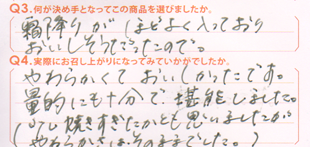 Q3.何が決め手となってこの商品を選びましたか。
霜降りがほどよく入っており
おいしそうだったので。
Q4.実際にお召し上がりになってみていかがでしたか。
やわらかくて おいしかったです。
量的にも十分で、堪能しました。
(少し焼きすぎたかとも思いましたが
やわらかさはそのままでした。)